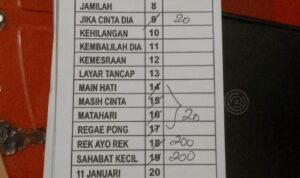 JAMILAH 8
JIKA CINTA DIA 9 20
KEHILANGAN 10
KEMBALILAH DIA 11
KEMESRAAN 12
LAYAR TANCAP 13
MAIN HATI 14
MASIH CINTA 15
MATAHARI 16 20
REGAE PONG 17
REK AYO REK 18 200
SAHABAT KECIL 19 200
11 JANUARI 20